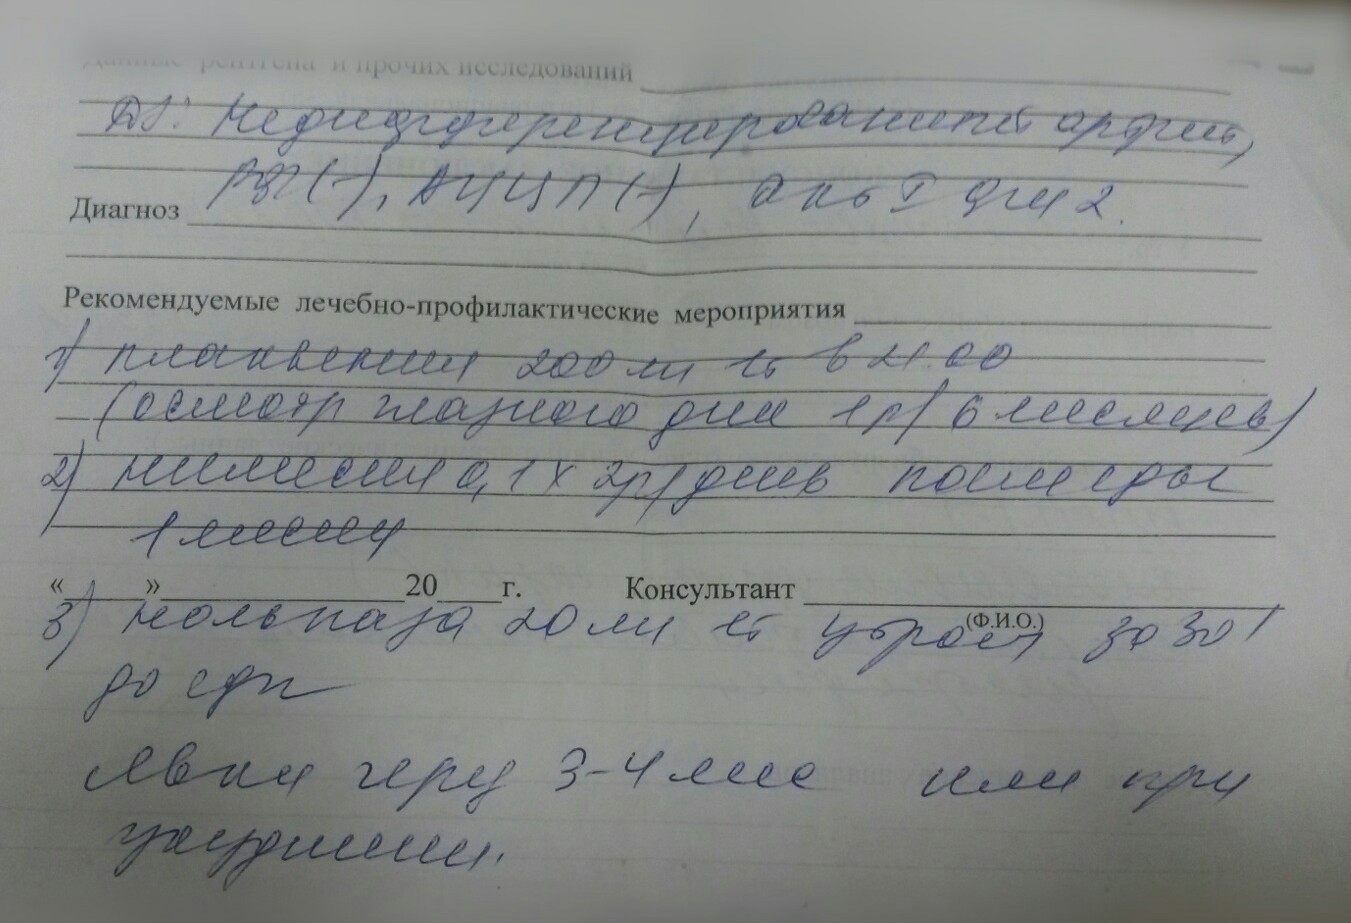 Данные рентгена и прочих исследований
DS: Недифференцированный артрит,
РФ(-), АЦЦП(-), акт I ФН 2.
Диагноз
Рекомендуемые лечебно-профилактические мероприятия
1) плаквенил 200 мг 1т в 21.00
(осмотр глазного дна 1р/6 месяцев)
2) нимесил 0,1 х 2р/день после еды
1 месяц
« » 20 г. Консультант
(Ф.И.О.)
3) нольпаза 20 мг 1т утром за 30'
до еды
Явка через 3-4 мес или при
ухудшении.